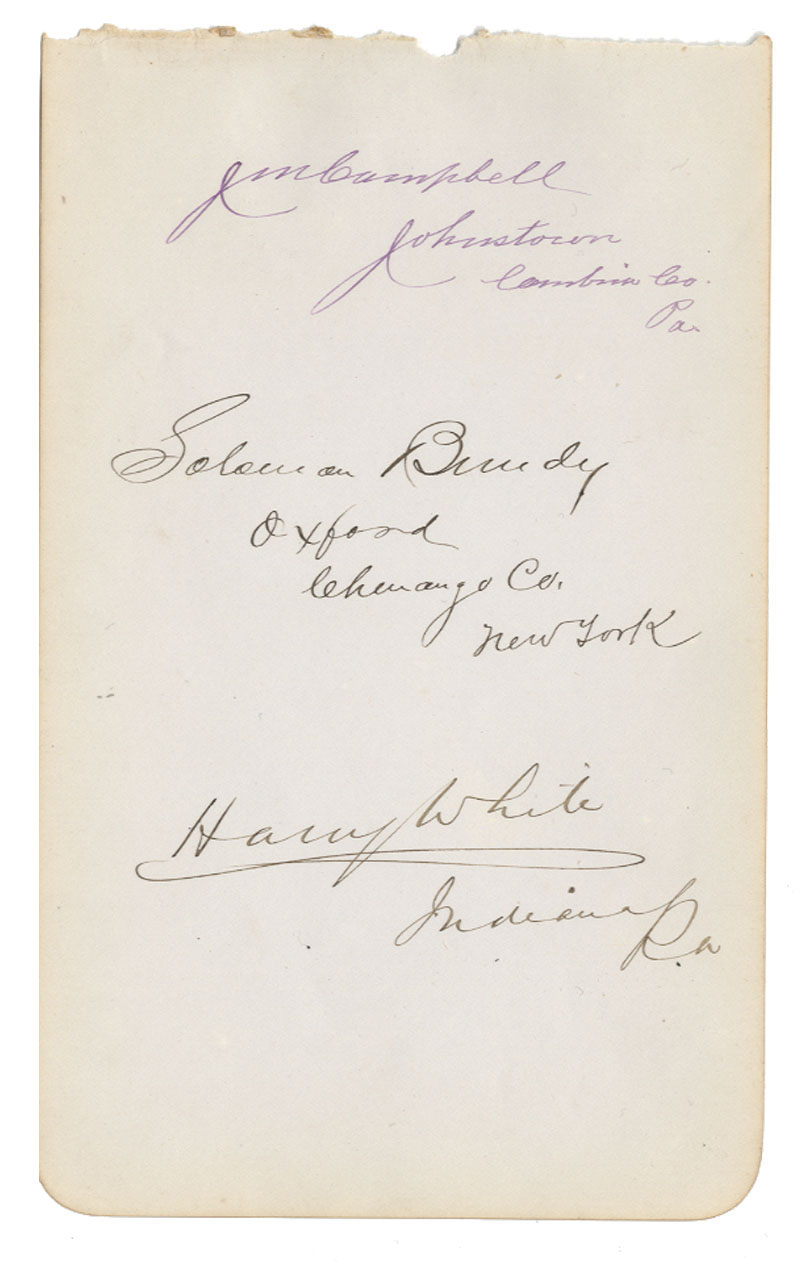 J M Campbell
Johnstown
Cambria Co.
Pa.
Solomon Bundy
Oxford
Chenango Co.
New York
Harry White
Indiana
Pa